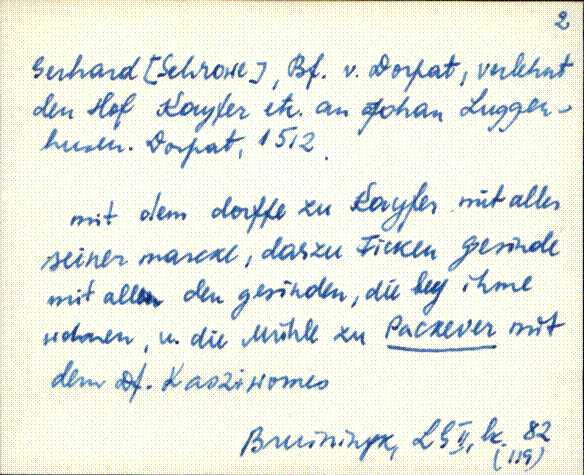 2
Gerhard [Schrowe], Bf. v. Dorpat, verlehnt
den Hof Kayfer etc. an Johan Luggen-
husen. Dorpat, 1512.
mit dem dorffe zu Kayfer mit aller
seiner marcke, darzu Ficken gesinde
mit allen den gesinden, die bey ihme
wohnen, u. die Mühle zu Packever mit
dem Df.
Bruiningk, LG II, № 82
(119)